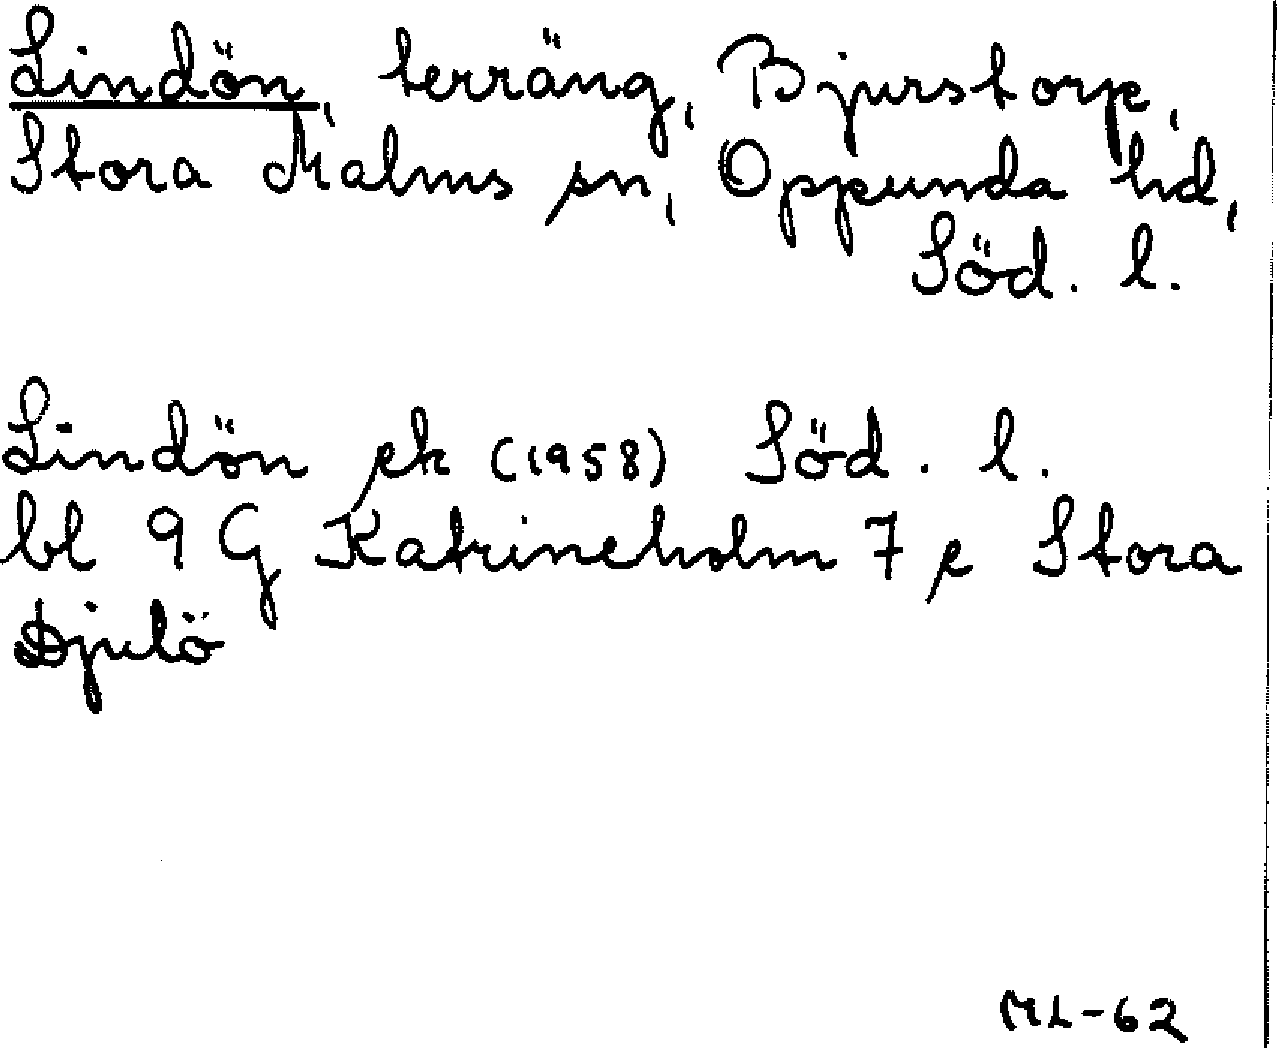 Lindön, terräng, Bjurstorp,
Stora Malms sn, Oppunda hd,
Söd. l.
Lindön ek (1958) Söd. l.
bl 9 G Katrineholm 7 e Stora
Djulö
ML-62